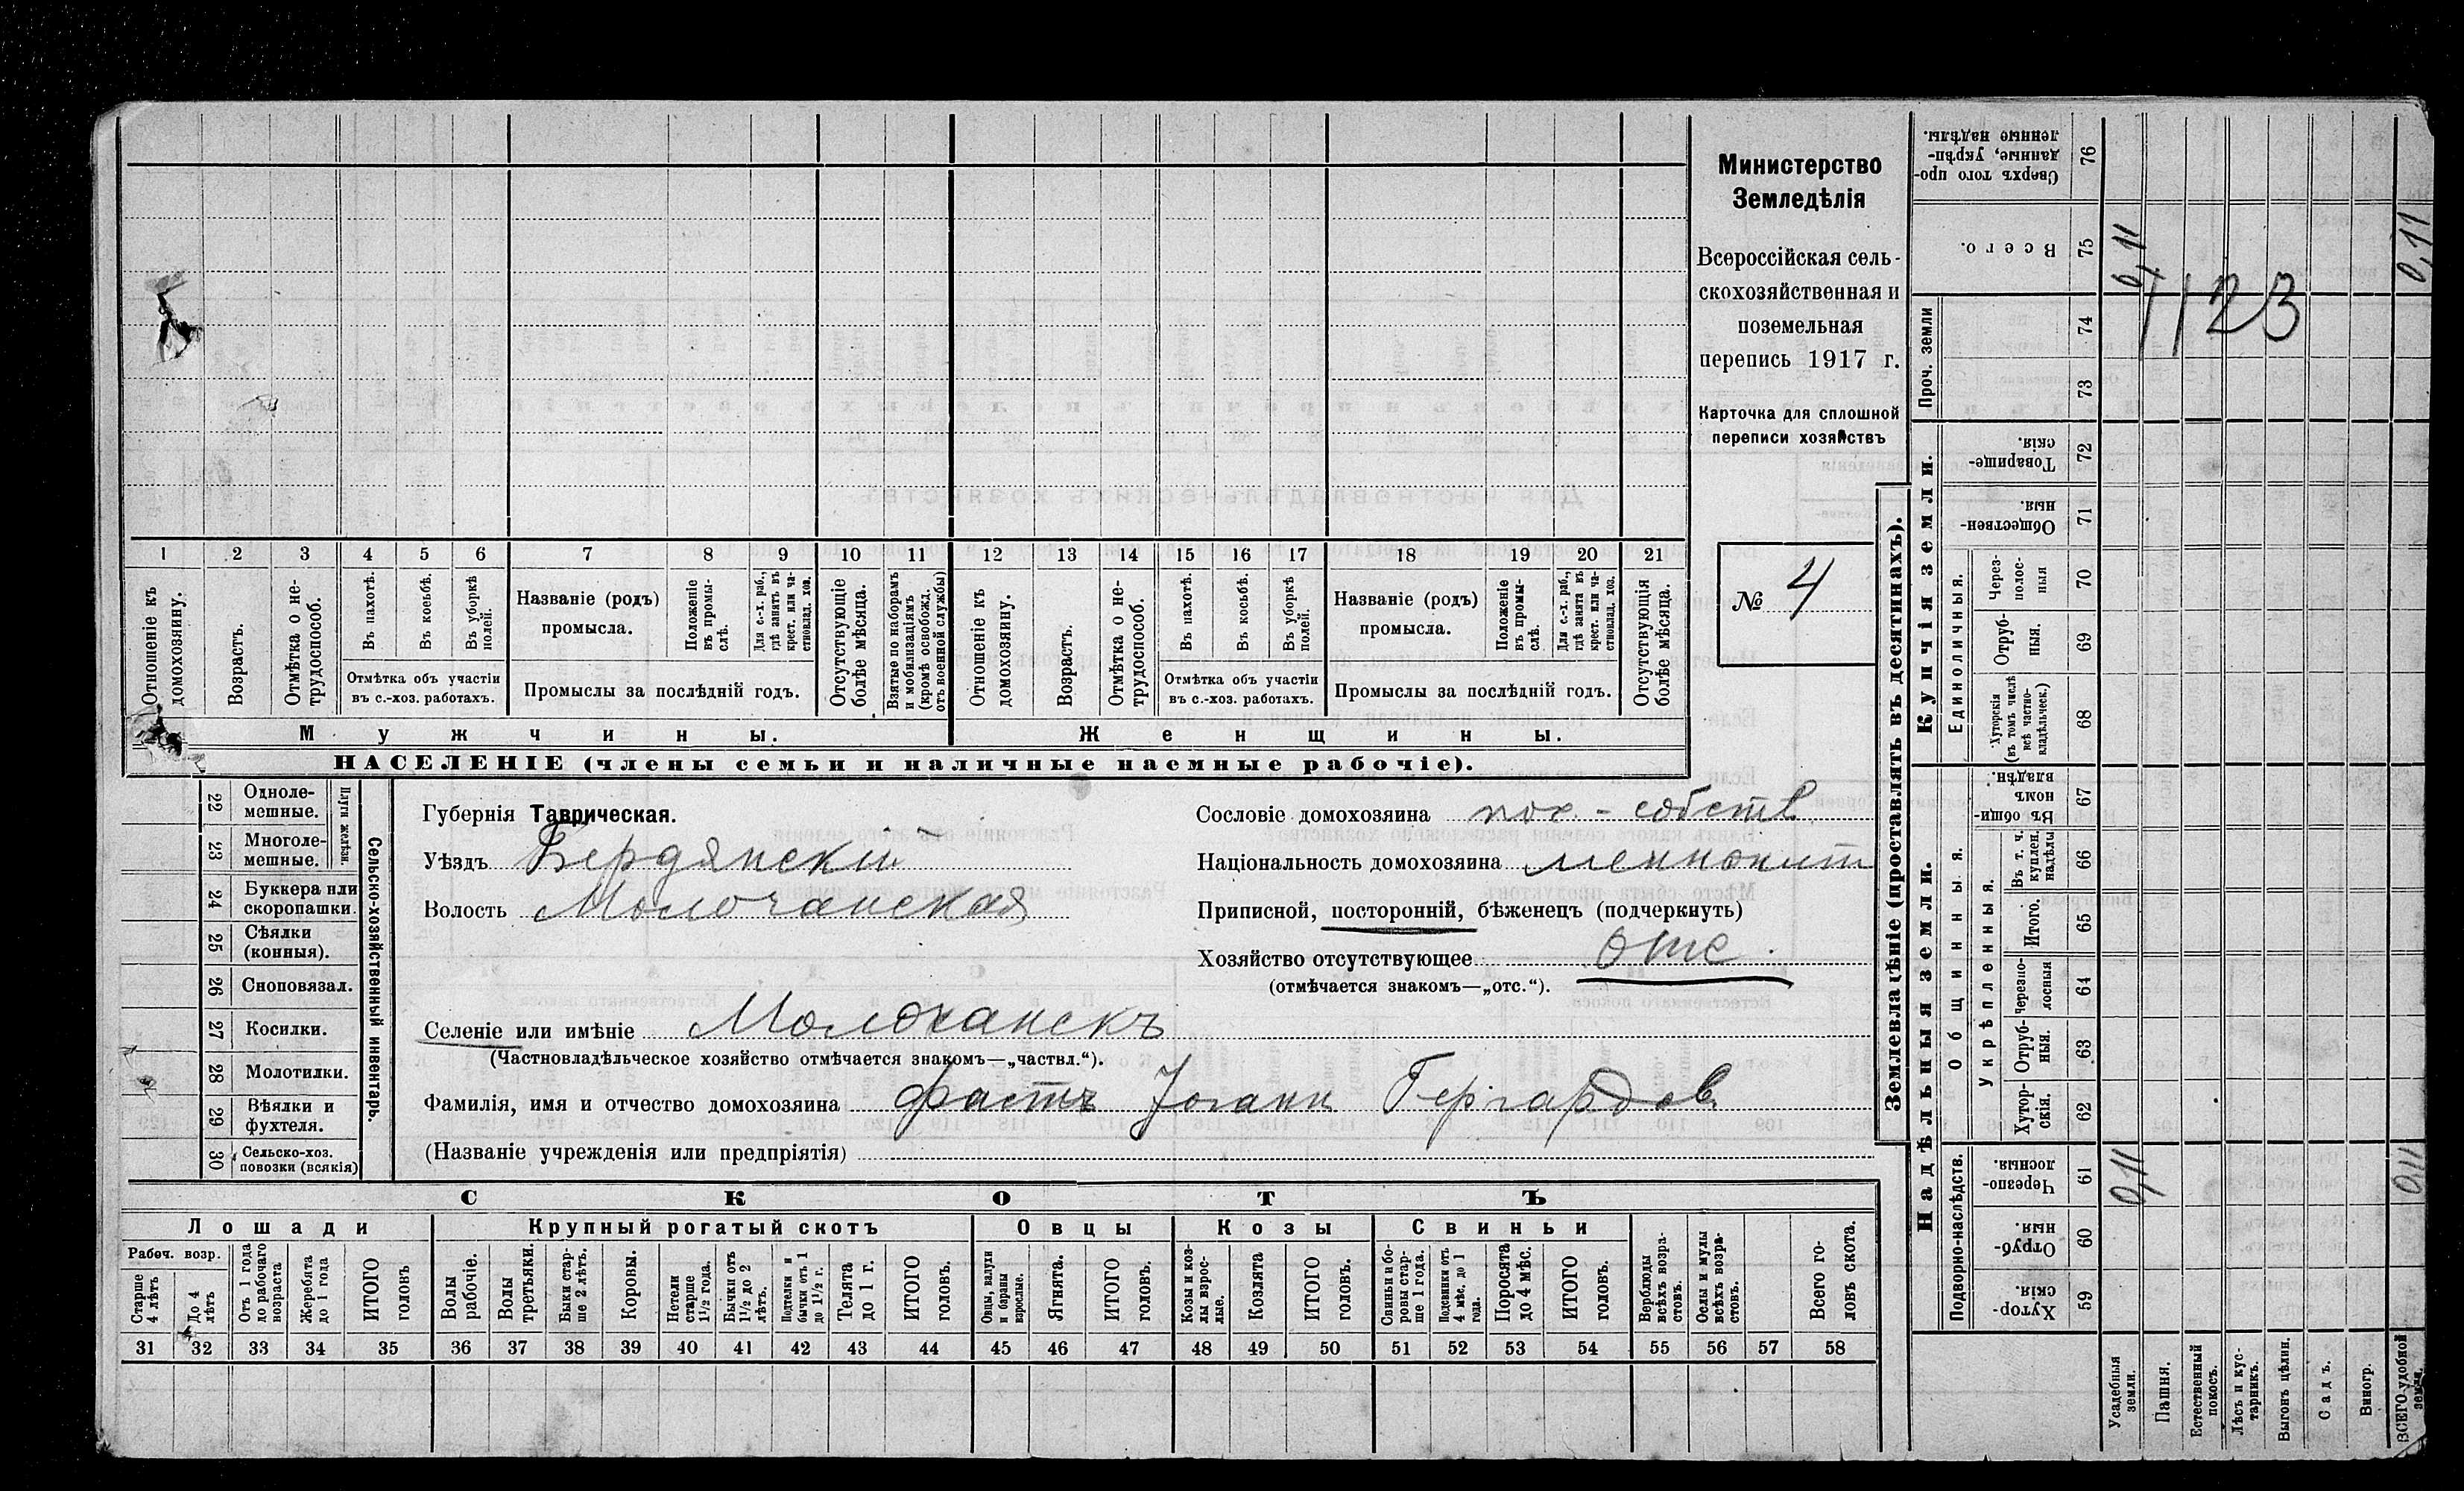 Министерство
Земледѣлія
Всероссійская сель-
скохозяйственная и
поземельная
перепись 1917 г.
Карточка для сплошной
переписи хозяйствъ
№ 4
1 2 3 4 5 6 7 8 9 10 11 12 13 14 15 16 17 18 19 20 21
Отношеніе къ домохозяину.
Возрастъ.
Отмѣтка о не-трудоспособ.
Въ пахотѣ.
Въ косьбѣ.
Въ уборкѣ полей.
Отмѣтка объ участіи
въ с.-хоз. работахъ.
Названіе (родъ)
промысла.
Положеніе въ промы-слѣ.
Для с.-х. раб., гдѣ занятъ въ крест. или ча-стновлад. хоз.
Промыслы за послѣдній годъ.
Отсутствующіе болѣе мѣсяца.
Взятые по наборамъ и мобилизаціямъ (кромѣ освобожд. отъ военной службы)
Отношеніе къ домохозяину.
Возрастъ.
Отмѣтка о не-трудоспособ.
Въ пахотѣ.
Въ косьбѣ.
Въ уборкѣ полей.
Отмѣтка объ участіи
въ с.-хоз. работахъ.
Названіе (родъ)
промысла.
Положеніе въ промы-слѣ.
Для с.-х. раб., гдѣ занята въ крест. или ча-стновлад. хоз.
Промыслы за послѣдній годъ.
Отсутствующія болѣе мѣсяца.
Мужчины. Женщины.
НАСЕЛЕНІЕ (члены семьи и наличные наемные рабочіе).
22 Одноле-мешные.
23 Многоле-мешные.
Плуги желѣзн.
24 Буккера или скоропашки.
25 Сѣялки (конныя).
26 Сноповязал.
27 Косилки.
28 Молотилки.
29 Вѣялки и фухтеля.
30 Сельско-хоз. повозки (всякія)
Сельско-хозяйственный инвентарь.
Губернія Таврическая.
Уѣздъ Бердянскій
Волость Молочанская
Сословіе домохозяина пос. - собств
Національность домохозяина меннонит
Приписной, посторонній, бѣженецъ (подчеркнуть)
Хозяйство отсутствующее отс.
(отмѣчается знакомъ—„отс.“).
Селеніе или имѣніе Молочанскъ
(Частновладѣльческое хозяйство отмѣчается знакомъ—„частвл.“).
Фамилія, имя и отчество домохозяина Фастъ Іоганн Гергардов
(Названіе учрежденія или предпріятія)
СКОТЪ
Лошади Крупный рогатый скотъ Овцы Козы Свиньи
Рабоч. возр.
Старше 4 лѣтъ
До 4 лѣтъ
Отъ 1 года до рабочаго возраста
Жеребята до 1 года
ИТОГО головъ
Волы рабочіе.
Волы третьяки.
Быки стар-ше 2 лѣтъ.
Коровы.
Нетели старше 1½ года.
Бычки отъ 1½ до 2 лѣтъ.
Подтелки и бычки отъ 1 до 1½ г.
Телята до 1 г.
ИТОГО головъ.
Овцы, валухи и бараны взрослые.
Ягнята.
ИТОГО головъ.
Козы и коз-лы взрос-лые.
Козлята
ИТОГО головъ.
Свиньи и бо-ровы стар-ше 1 года.
Подсвинки отъ 4 мѣс. до 1 года.
Поросята до 4 мѣс.
ИТОГО головъ.
Верблюды всѣхъ возра-стовъ.
Ослы и мулы всѣхъ возра-стовъ.
Всего го-ловъ скота.
31 32 33 34 35 36 37 38 39 40 41 42 43 44 45 46 47 48 49 50 51 52 53 54 55 56 57 58
Землевладѣніе (проставлять въ десятинахъ).
Купчія земли.
Надѣльныя земли.
Сверхъ того про-данные, укрѣп-ленные надѣлы. 76
Всего. 75
0,11
0,11
1123
Проч. земли 74
73
Товарище-скія. 72
Обществен-ныя. 71
Единоличныя.
Через-полос-ныя 70
Отруб-ныя. 69
Хуторскія (въ томъ числѣ всѣ частно-владѣльческ.) 68
Общинныя.
Въ общин-номъ владѣн. 67
Укрѣпленныя.
Въ т. ч. куплен. надѣлы 66
Итого. 65
Черезпо-лосныя 64
Отруб-ныя. 63
Хутор-скія. 62
Подворно-наслѣдств.
Черезпо-лосныя. 61
0,11
0,11
Отруб-ныя. 60
Хутор-скія. 59
Усадебныя земли.
Пашня.
Естественный покосъ.
Лѣсъ и кус-тарникъ.
Выгонъ цѣлин.
Садъ.
Виногр.
ВСЕГО удобной земли.